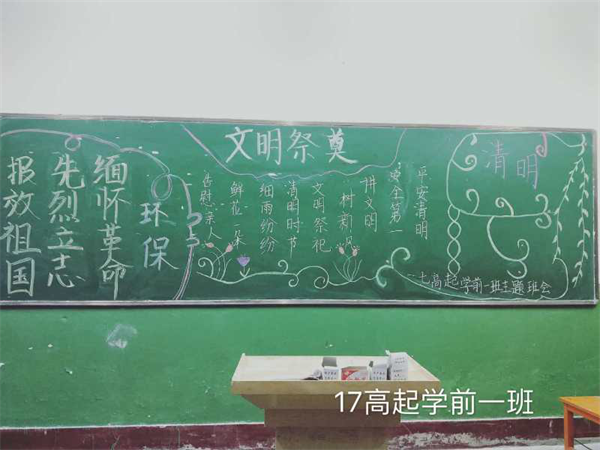 文明祭奠
清明
平安清明
安全第一
讲文明
树新风
文明祭祀
清明时节
细雨纷纷
鲜花一朵
告慰亲人
环保
缅怀革命
先烈立志
报效祖国
一七高起学前一班主题班会
17高起学前一班